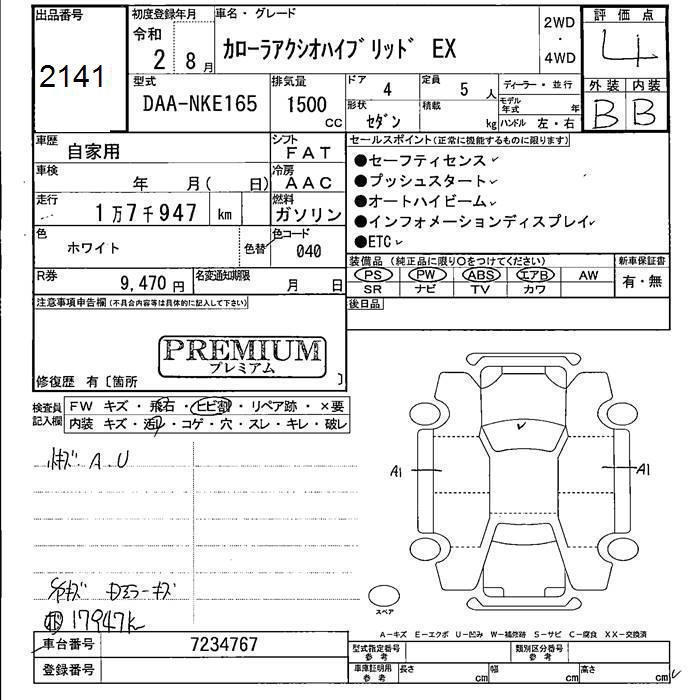 出品番号 初度登録年月 車名・グレード 2WD 評価点
2141 令和 2 8月 カローラアクシオハイブリッド EX ・ 4
4WD
型式 排気量 ドア 4 定員 5 人 ディーラー・並行 外装 内装
DAA-NKE165 1500 cc 形状 セダン 積載 kg モデル年式 年 B B
ハンドル 左・右
車歴 自家用 シフト FAT セールスポイント(正常に機能するものに限ります)
車検 年 月( 日) 冷房 AAC ●セーフティセンス
●プッシュスタート
走行 1万7千947 km 燃料 ガソリン ●オートハイビーム
●インフォメーションディスプレイ
色 ホワイト 色替 色コード 040 ●ETC
装備品(純正品に限り○をつけてください) 新車保証書
R券 9,470円 名変通知期限 月 日 PS PW ABS エアB AW 有・無
SR ナビ TV カワ
注意事項申告欄(不具合内容等は具体的に記入して下さい) 後日品
PREMIUM
プレミアム
修復歴 有〔箇所 〕
検査員記入欄 FW キズ・飛石・ヒビ割・リペア跡・×要
内装 キズ・汚れ・コゲ・穴・スレ・キレ・破レ
小キズ A.U
A1 A1
キズ
17947k
スペア
A-キズ E-エクボ U-凹み W-補修跡 S-サビ C-腐食 XX-交換済
車台番号 7234767 型式指定番号 参考 類別区分番号 参考
登録番号 車庫証明用 参考 長さ cm 幅 cm 高さ cm